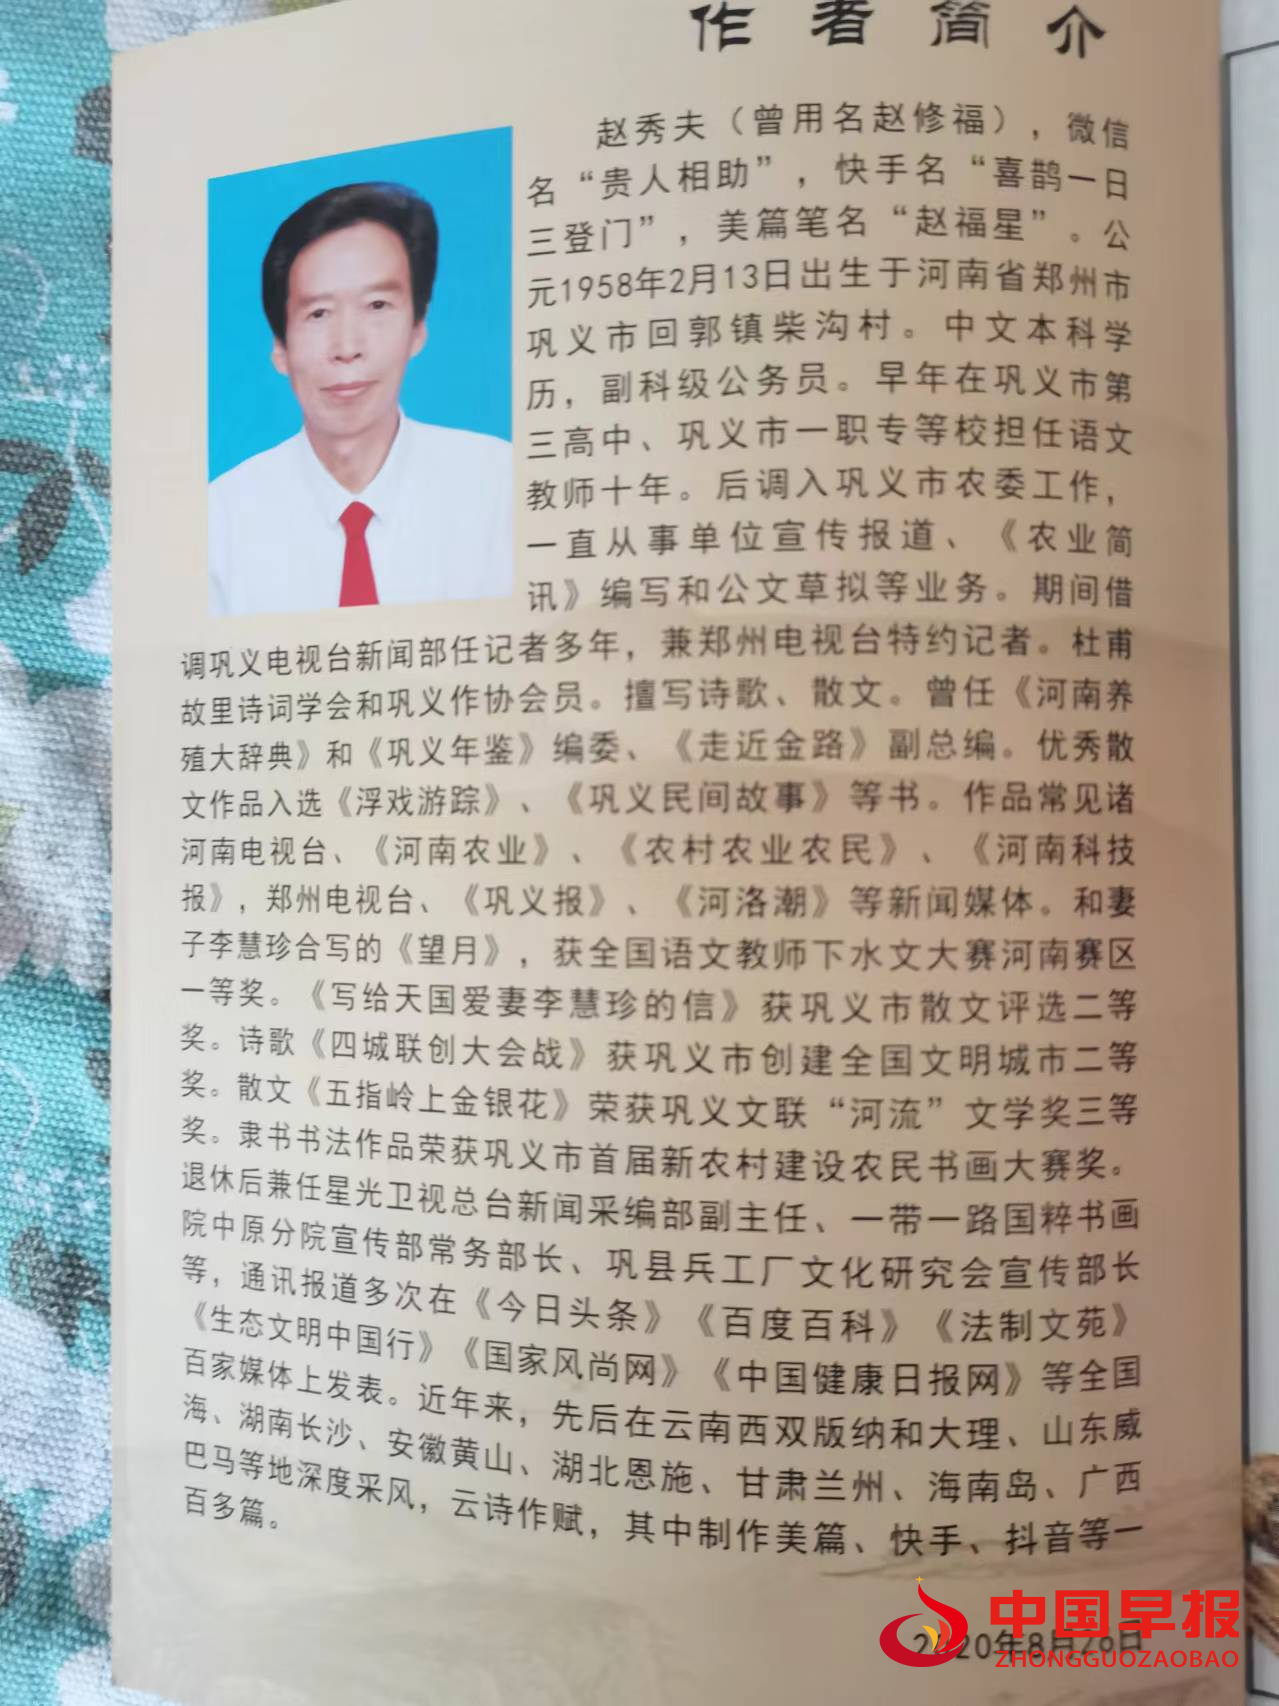 作者简介
赵秀夫（曾用名赵修福），微信
名“贵人相助”，快手名“喜鹊一日
三登门”，美篇笔名“赵福星”。公
元1958年2月13日出生于河南省郑州市
巩义市回郭镇柴沟村。中文本科学
历，副科级公务员。早年在巩义市第
三高中、巩义市一职专等校担任语文
教师十年。后调入巩义市农委工作，
一直从事单位宣传报道、《农业简
讯》编写和公文草拟等业务。期间借
调巩义电视台新闻部任记者多年，兼郑州电视台特约记者。杜甫
故里诗词学会和巩义作协会员。擅写诗歌、散文。曾任《河南养
殖大辞典》和《巩义年鉴》编委、《走近金路》副总编。优秀散
文作品入选《浮戏游踪》、《巩义民间故事》等书。作品常见诸
河南电视台、《河南农业》、《农村农业农民》、《河南科技
报》，郑州电视台、《巩义报》、《河洛潮》等新闻媒体。和妻
子李慧珍合写的《望月》，获全国语文教师下水文大赛河南赛区
一等奖。《写给天国爱妻李慧珍的信》获巩义市散文评选二等
奖。诗歌《四城联创大会战》获巩义市创建全国文明城市二等
奖。散文《五指岭上金银花》荣获巩义文联“河流”文学奖三等
奖。隶书书法作品荣获巩义市首届新农村建设农民书画大赛奖。
退休后兼任星光卫视总台新闻采编部副主任、一带一路国粹书画
院中原分院宣传部常务部长、巩县兵工厂文化研究会宣传部长
等，通讯报道多次在《今日头条》《百度百科》《法制文苑》
《生态文明中国行》《国家风尚网》《中国健康日报网》等全国
百家媒体上发表。近年来，先后在云南西双版纳和大理、山东威
海、湖南长沙、安徽黄山、湖北恩施、甘肃兰州、海南岛、广西
巴马等地深度采风，云诗作赋，其中制作美篇、快手、抖音等一
百多篇。
2020年8月26日
中国早报
ZHONGGUOZAOBAO